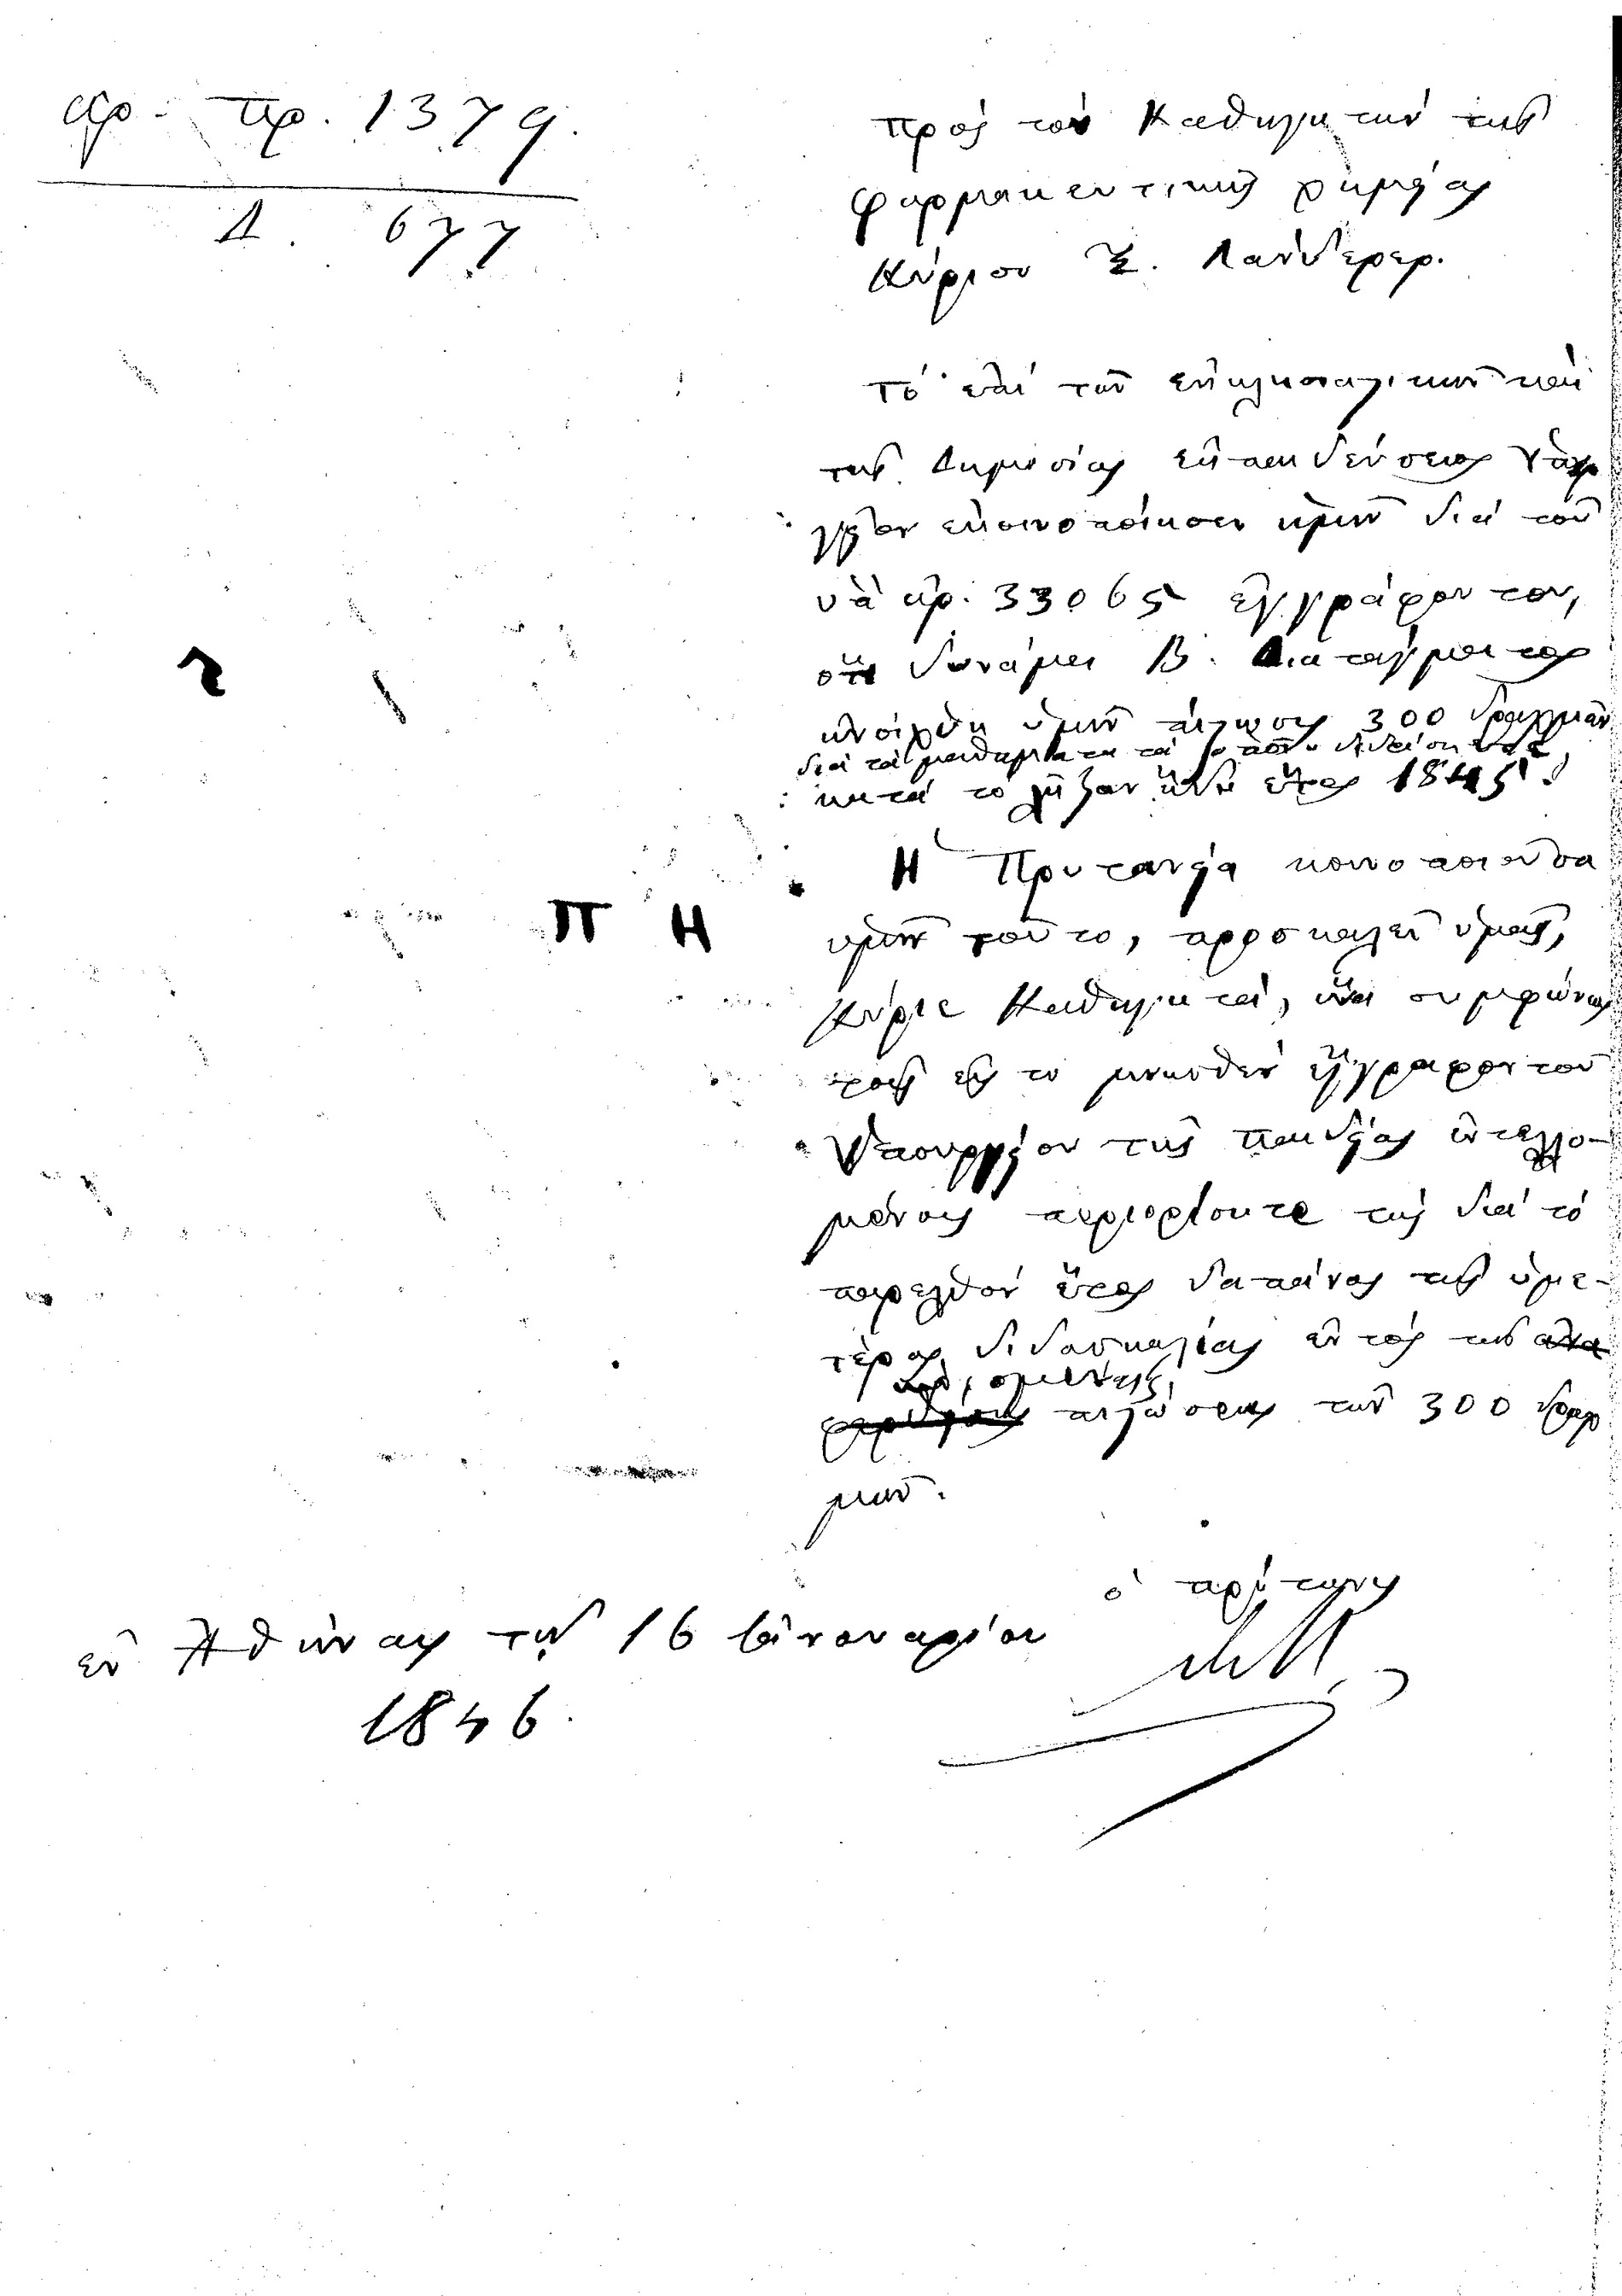 αρ: πρ. 1379.
Δ. 677
πρὸς τὸν Καθηγητὴν τῆς
φαρμακευτικῆς χημείας
Κύριον Ξ. Λάνδερερ.
Τὸ ἐπὶ τῶν ἐκκλησιαστικῶν καὶ
τῆς Δημοσίας ἐκπαιδεύσεως Ὑπουρ
γεῖον ἐκοινοποίησεν ἡμῖν διὰ τοῦ
ὑπ' ἀρ. 33065 ἐγγράφου του,
ὅτι δυνάμει Β. Διατάγματος
ἠνοίχθη ὑμῖν πίστωσις 300 δραχμῶν
διὰ τὰ μαθήματα τὰ
κατὰ τὸ λῆξαν ἤδη ἔτος 1845!
Ἡ Πρυτανεία κοινοποιοῦσα
ὑμῖν τοῦτο, προσκαλεῖ ὑμᾶς,
Κύριε Καθηγητά, ἵνα συμφώνως
πρὸς τὸ μνησθὲν ἔγγραφον τοῦ
Ὑπουργείου τῆς παιδείας ἐντελλο-
μένοις περιορίσητε τὰς διὰ τὸ
παρελθὸν ἔτος δαπάνας τῆς ὑμε-
τέρας διδασκαλίας ἐντὸς τῆς
πιστώσεως τῶν 300 δραχ
μῶν.
ὁ πρύτανις
ἐν Ἀθήναις τῇ 16 Ἰανουαρίου
1846.
Π Η